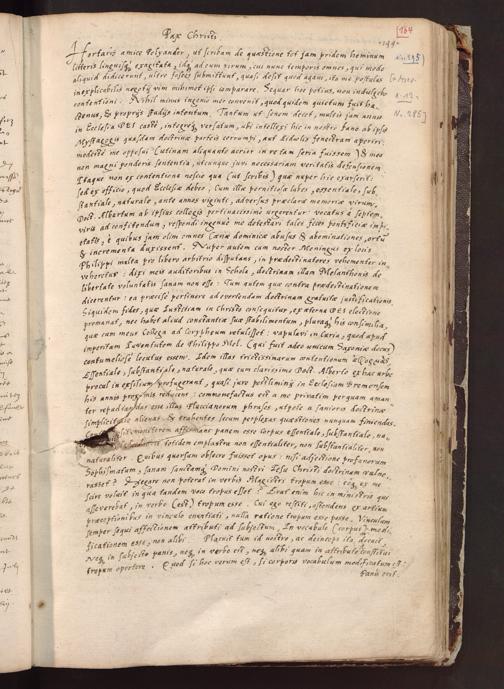 Pax Christi
164
Hortaris amice Polyander, ut scribam de quæstione tot jam pridem hominum
litteris linguisq, exagitata, idq, ad eum virum, cui nunc temporis omnes, qui modo
aliquid didicerunt, ultro fasces submittunt, quasi desit quod agam, ita me postulas
inexplicabile negotium mihimetipsi comparare. Sequar hoc potius, non indulgebo
contentioni. Nihil minus ingenio meo convenit, quod quidem quietum fuit ha-
ctenus, & propriis studiis intentum. Tantum ut senem decet, multis jam annis
in Ecclesia DEI caste, integreq, versatum, ubi intellexi hic in nostro pene ab ipso
Mystagogis quasdam doctrinæ partes corrumpi, aut Idolis fenestram aperiri:
modeste me opposui (utinam aliquanto acrior in re tam seria fuissem) & mea
non magni ponderis sententia, utcunque juvi necessariam veritatis defensionem.
Itaque non ex contentione nescio qua (ut scribis) quæ nuper hic exarserit:
sed ex officio, quod Ecclesiæ debeo, Cum illæ perniciosæ labes, essentiale, sub,
stantiale, naturale, ante annos viginti, adversus præclaræ memoriæ virum,
Doct. Albertum ab ipsius collegis pertinacissime urgerentur: vocatus à septem,
viris ad consitendum, respondi ingenue me detestari tales fæces pontificiæ impi,
etatis, è quibus jam olim omnes Cænæ dominicæ abusus & abominationes, ortum
& incrementa duxissent. Nuper autem cum noster Meningus ex locis
Philippi multa pro libero arbitrio disputans, in prædestinatores vehementer in,
veheretur: dixi meis auditoribus in Schola, doctrinam illam Melanthonis de
libertate voluntatis sanam non esse: Tum autem quæ contra prædestinationem
dicerentur: ea præcise pertinere ad evertendam doctrinam gratuitæ justificationis.
Siquidem fides, quæ Iustitiam in Christo consequitur, ex æterna DEI electione
promanat, nec habet aliud constantiæ suæ stabilimentum, pluraq, his consimilia,
quæ cum meus Collega ad Corypheum retulisset: vapulavi in Curia, quod apud
imperitam Iuventutem de Philippo Mel. (qui fuit adeo unicum Saxoniæ decus)
contumeliose locutus essem. Idem illas tristissimarum contentionum
Essentiale, substantiale, naturale, quæ cum clarissimo Doct. Alberto ex hac urbe
procul in exsilium profugerant, quasi jure postliminij in Ecclesiam Bremensem
his annis proximis reducere: commonefactus est à me privatim perquam aman-
ter repudiandas esse illas Flaccianorum phrases, utpote à sanioris doctrinæ
simplicitate alienas & trahentes secum perplexas quæstiones nunquam finiendas.
panem esse corpus essentiale, substantiale, na,
totidem emplastra non essentialiter, non substantialiter, non
naturaliter. Quibus quorsum obsecro fuisset opus: nisi adjectione profanorum
Sophismatum, sanam sanctamq, Domini nostri Iesu Christi doctrinam vulne,
rasset? Negare non poterat in verbis Magistri tropum esse: eoq, ex me
scire voluit in qua tandem voce tropus esset? Erat enim hic in ministerio qui
asseverabat, in verbo (est) tropum esse. Cui ego restiti, ostendens ex artium
præceptionibus in vinculo enuntiati, nulla ratione tropum esse posse. Vinculum
semper sequi affectionem attributi ad subjectum, In vocabulo (corpus) modi,
ficationem esse, non alibi. Placuit tum id nostro, ac deinceps ita docuit,
Neq, in subjecto panis, neq, in verbo est, neq, alibi quam in attributo constitui
tropum oportere. Quod si hoc verum est, si corporis vocabulum modificatum est:
Panis erit.